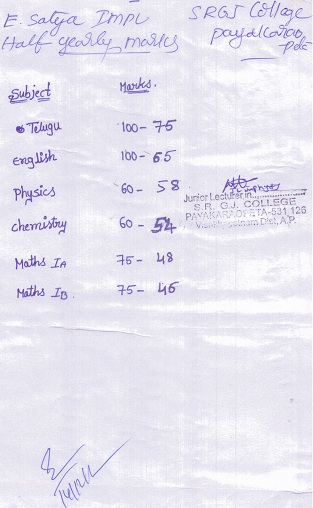 E. Satya
SRGJ College
Half yearly marks
Subject Marks.
Telugu 100 - 75
English 100 - 65
Physics 60 - 58
Chemistry 60 - 54
Maths IA 75 - 48
Maths IB 75 - 46
Junior Lecturer in
S.R. G.J. COLLEGE
PAYAKARAOPETA-531 126
Visakhapatnam Dist, A.P.